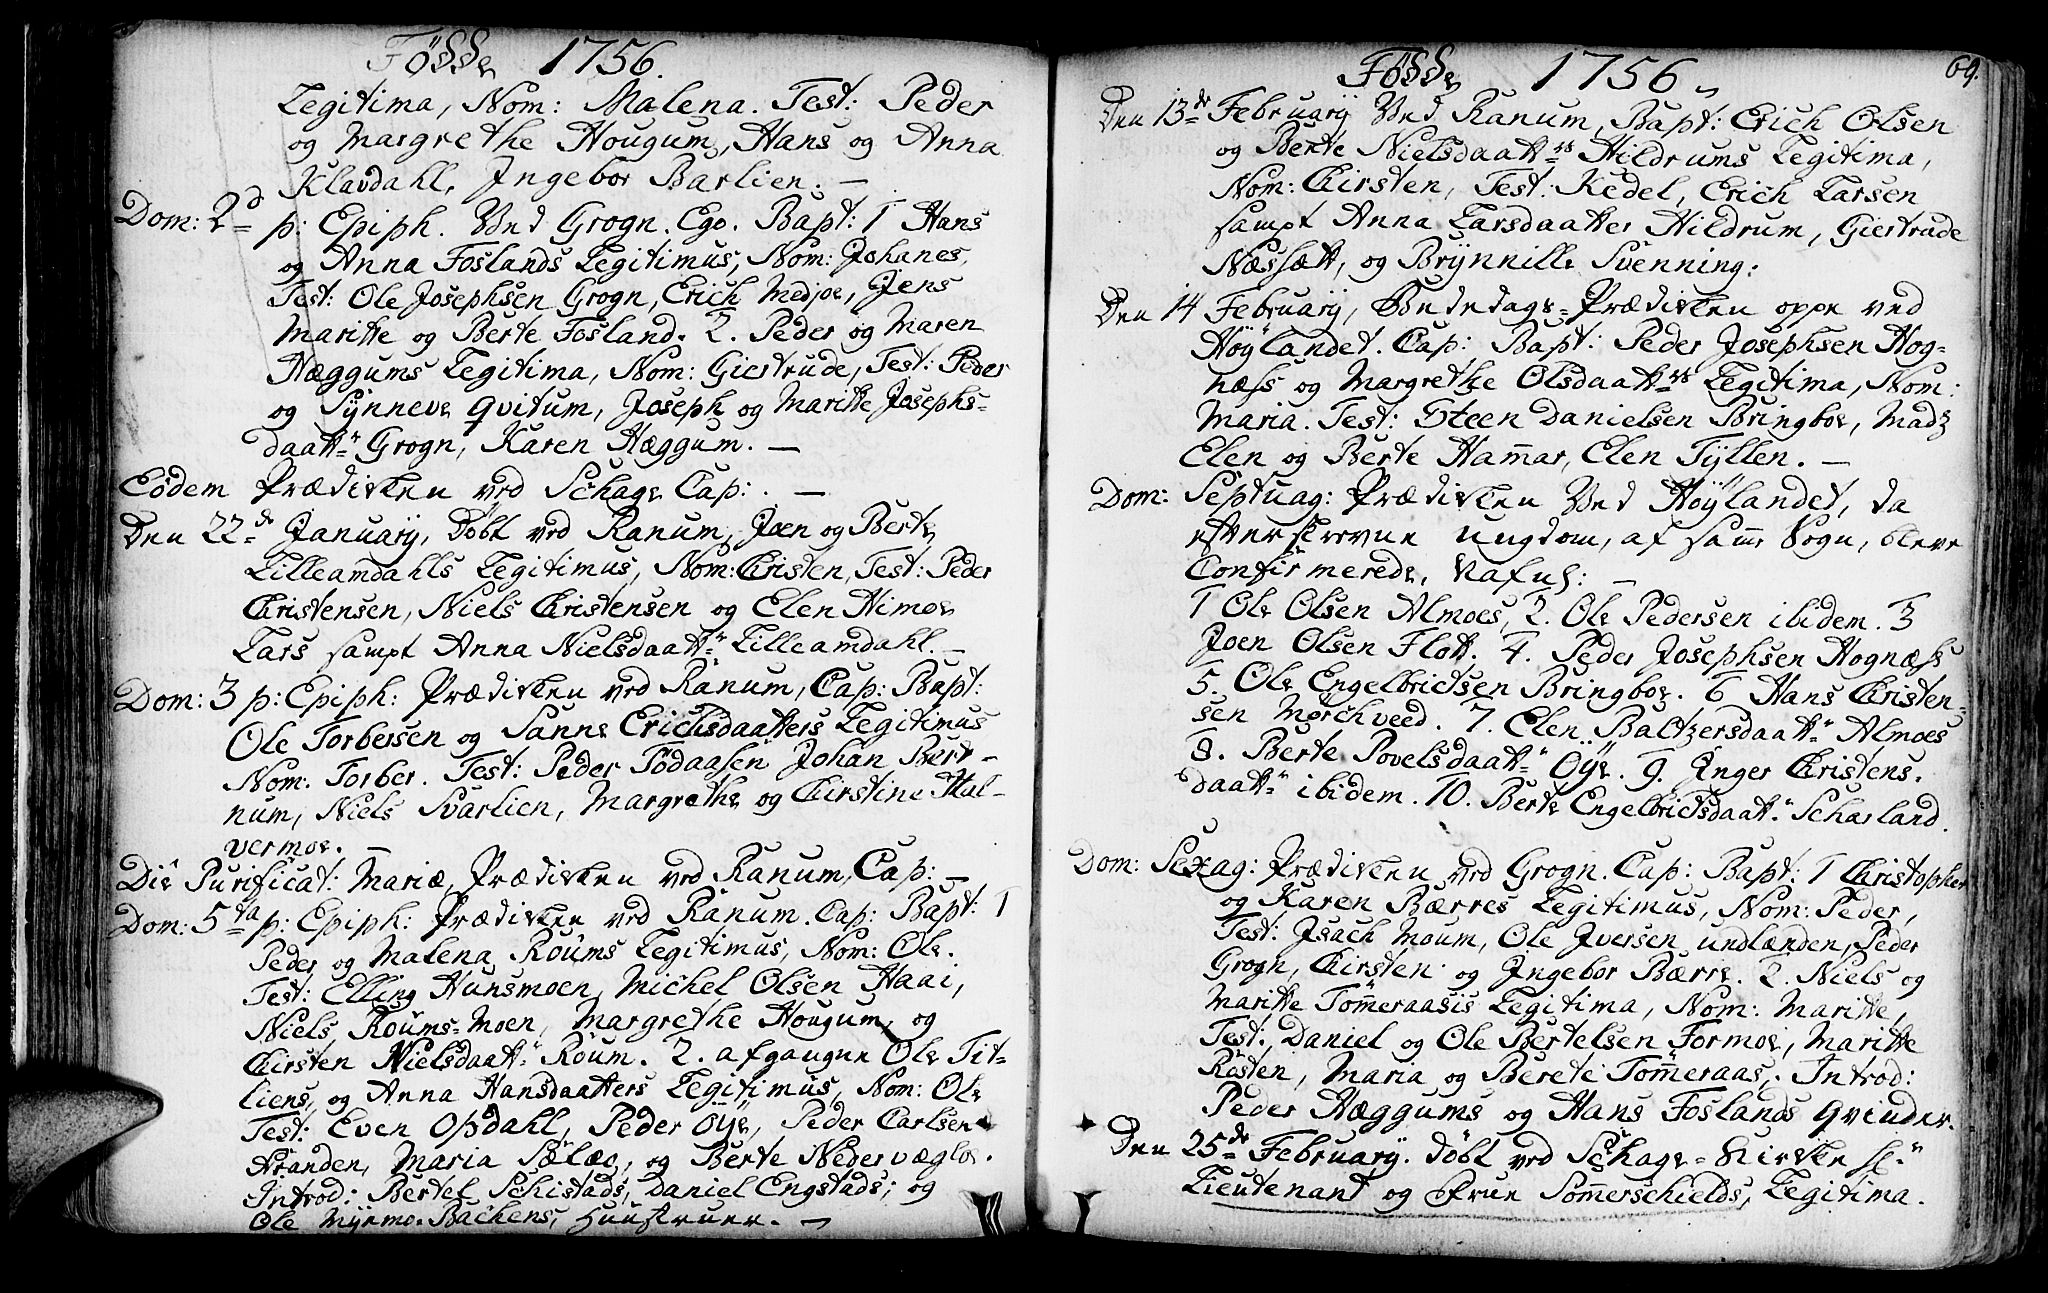 Fødde 1756.
Legitima, Nom: Malena. Test: Peder
og Margrethe Hougum, Hans og Anna
Klavdahl, Ingebor Barlien. —
Dom: 2d p: Epiph. Ved Grogn. Ego. Bapt: 1 Hans
og Anna Foslands Legitimus, Nom: Johanes,
Test: Ole Josephsen Grogn, Erich Medjoe, Jens
Maritte og Berte Fosland. 2. Peder og Maren
Hæggums Legitima, Nom: Giertrude, Test: Peder
og Synneve Qvitum, Joseph og Maritte Josephs-
daatt" Grogn, Karen Hæggum. —
Eodem Prædicken ved Schage Cap: . —
Den 22de Januarij, Døbt ved Ranum, Joen og Berte
Lilleamdahls Legitimus, Nom: Christen, Test: Peder
Christensen, Niels Christensen og Elen Himoe
Lars sampt Anna Nielsdaatt" Lilleamdahl. —
Dom: 3 p: Epiph: Prædicken ved Ranum, Cap: Bapt:
Ole Torbersen og Sanne Erichsdaatters Legitimus
Nom: Torber. Test: Peder Födaasen Johan Bert-
num, Niels Svarlien, Margrethe og Chirstine Hal-
vermoe. —
Die Purificat: Mariæ, Prædicken ved Ranum, Cap: —
Dom: 5ta p: Epiph: Prædicken ved Ranum. Cap: Bapt: 1
Peder og Malena Roüms Legitimus, Nom: Ole.
Test: Elling Hunsmoen, Michel Olsen Haai,
Niels Roüms-Moen, Margrethe Hougum, og
Chirsten Nielsdaatt" Roüm. 2. afgangne Ole Tit-
liens, og Anna Hansdaatters Legitimus, Nom: Ole
Test: Even Opdahl, Peder Öÿe, Peder Carlsen
Stranden, Maria Sæl, og Berte Nedervægloe.
Introd: Bertel Schistads, Daniel Engstads; og
Ole Myrmo-Bachens, Huustruer. —
Fødde 1756. 69.
Den 13de Februarij Ved Ranum, Bapt: Erich Olsen
og Berte Nielsdaatt"rs Hildrums Legitima,
Nom: Chirsten, Test: Kedel, Erich Larsen
sampt Anna Larsdaatter Hildrum, Giertrude
Næssætt, og Brynnille Svenning:
Den 14 Februarij, Bededags-Prædicken oppe ved
Høÿlandet. Cap: Bapt: Peder Josephsen Hog-
næss og Margrethe Olsdaatt"rs Legitima, Nom:
Maria. Test: Steen Danielsen Bringboe, Madz
Elen og Berte Ham̄ar, Elen Tyllen. —
Dom: Septuag: Prædicken Ved Høÿlandet, da
efterskrevne Ungdom, af samme Sogn, bleve
Confirmerede, Nafnl: —
1 Ole Olsen Almoes, 2. Ole Pedersen ibidem. 3
Joen Olsen Flott. 4. Peder Josephsen Hognæss
5. Ole Engelbrictsen Bringboe. 6 Hans Christen-
sen Morchveed. 7. Elen Baltzersdaatt" Almoes
8. Berte Povelsdaatt" Öÿe. 9. Inger Christens-
daatt" ibidem. 10. Berte Engelbrictsdaatt" Scharland.
Dom: Sexag: Prædicken ved Grogn. Cap: Bapt: 1 Christopher
og Karen Bærres Legitimus, Nom: Peder,
Test: Isach Moum, Ole Iversen undlænden, Peder
Grogn, Chirsten og Ingebor Bærre. 2. Niels og
Maritte Töm̄eraasis Legitima, Nom: Maritte,
Test: Daniel og Ole Bertelsen Formoe, Maritte
Rösten, Maria og Berete Töm̄eraas. Introd:
Peder Hæggums og Hans Foslands Qvinder.
Den 25de Februarij. Døbt ved Schage-Kircke H"
Lieutenant og Frue Som̄erschields, Legitima.